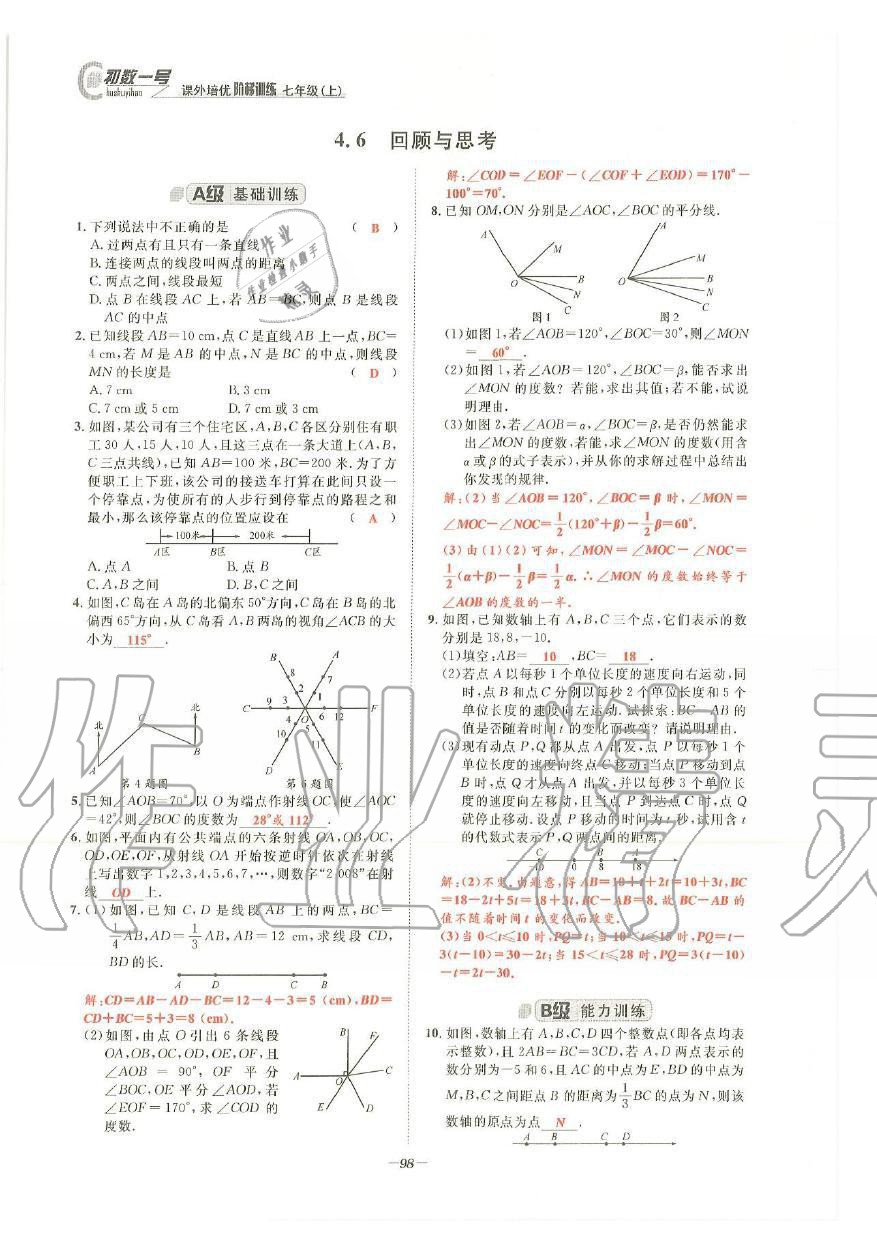 初数一号
Chushuyihao
课外培优 阶梯训练 七年级(上)
4.6 回顾与思考
A级 基础训练
1.下列说法中不正确的是 ( B )
A.过两点有且只有一条直线
B.连接两点的线段叫两点的距离
C.两点之间,线段最短
D.点B在线段AC上,若AB=BC,则点B是线段
AC的中点
2.已知线段AB=10 cm,点C是直线AB上一点,BC=
4 cm,若M是AB的中点,N是BC的中点,则线段
MN的长度是 ( D )
A.7 cm B.3 cm
C.7 cm或5 cm D.7 cm或3 cm
3.如图,某公司有三个住宅区,A,B,C各区分别住有职
工30人,15人,10人,且这三点在一条大道上(A,B,
C三点共线),已知AB=100米,BC=200米.为了方
便职工上下班,该公司的接送车打算在此间只设一
个停靠点,为使所有的人步行到停靠点的路程之和
最小,那么该停靠点的位置应设在 ( A )
100米 200米
A区 B区 C区
A.点A B.点B
C.A,B之间 D.B,C之间
4.如图,C岛在A岛的北偏东50°方向,C岛在B岛的北
偏西65°方向,从C岛看A,B两岛的视角∠ACB的大
小为 115° .
北 C 北 A B
第4题图
B A 8 7 2 1 C 9 3 O 6 12 F 4 5 10 11 D E
第6题图
5.已知∠AOB=70°,以O为端点作射线OC,使∠AOC
=42°,则∠BOC的度数为 28°或112° .
6.如图,平面内有公共端点的六条射线OA,OB,OC,
OD,OE,OF,从射线OA开始按逆时针依次在射线
上写出数字1,2,3,4,5,6,7,…,则数字“2 008”在射
线 OD 上.
7.(1)如图,已知C,D是线段AB上的两点,BC=
1/4AB,AD=1/3AB,AB=12 cm,求线段CD,
BD的长.
A D C B
解:CD=AB-AD-BC=12-4-3=5(cm),BD=
CD+BC=5+3=8(cm).
(2)如图,由点O引出6条线段
OA,OB,OC,OD,OE,OF,且
∠AOB=90°,OF平分
∠BOC,OE平分∠AOD,若
∠EOF=170°,求∠COD的
度数.
B F A O C E D
解:∠COD=∠EOF-(∠COF+∠EOD)=170°-
100°=70°.
8.已知OM,ON分别是∠AOC,∠BOC的平分线.
A M O B N C
图1
A M O B N C
图2
(1)如图1,若∠AOB=120°,∠BOC=30°,则∠MON
= 60° .
(2)如图1,若∠AOB=120°,∠BOC=β,能否求出
∠MON的度数?若能,求出其值;若不能,试说
明理由.
(3)如图2,若∠AOB=α,∠BOC=β,是否仍然能求
出∠MON的度数,若能,求∠MON的度数(用含
α或β的式子表示),并从你的求解过程中总结出
你发现的规律.
解:(2)当∠AOB=120°,∠BOC=β时,∠MON=
∠MOC-∠NOC=1/2(120°+β)-1/2β=60°.
(3)由(1)(2)可知,∠MON=∠MOC-∠NOC=
1/2(α+β)-1/2β=1/2α.∴∠MON的度数始终等于
∠AOB的度数的一半.
9.如图,已知数轴上有A,B,C三个点,它们表示的数
分别是18,8,-10.
(1)填空:AB= 10 ,BC= 18 .
(2)若点A以每秒1个单位长度的速度向右运动,同
时,点B和点C分别以每秒2个单位长度和5个
单位长度的速度向左运动.试探索:BC-AB的
值是否随着时间t的变化而改变?请说明理由.
(3)现有动点P,Q都从点A出发,点P以每秒1个
单位长度的速度向终点C移动;当点P移动到点
B时,点Q才从点A出发,并以每秒3个单位长
度的速度向左移动,且当点P到达点C时,点Q
就停止移动.设点P移动的时间为t秒,试用含t
的代数式表示P,Q两点间的距离.
C O B A
-10 0 8 18
解:(2)不变.由题意,得AB=10+t+2t=10+3t,BC
=18-2t+5t=18+3t,BC-AB=8.故BC-AB的
值不随着时间t的变化而改变.
(3)当0<t≤10时,PQ=t;当10<t≤15时,PQ=t-
3(t-10)=30-2t;当15<t≤28时,PQ=3(t-10)
-t=2t-30.
B级 能力训练
10.如图,数轴上有A,B,C,D四个整数点(即各点均表
示整数),且2AB=BC=3CD,若A,D两点表示的
数分别为-5和6,且AC的中点为E,BD的中点为
M,B,C之间距点B的距离为1/3BC的点为N,则该
数轴的原点为点 N .
A B C D
—98—
作业精灵